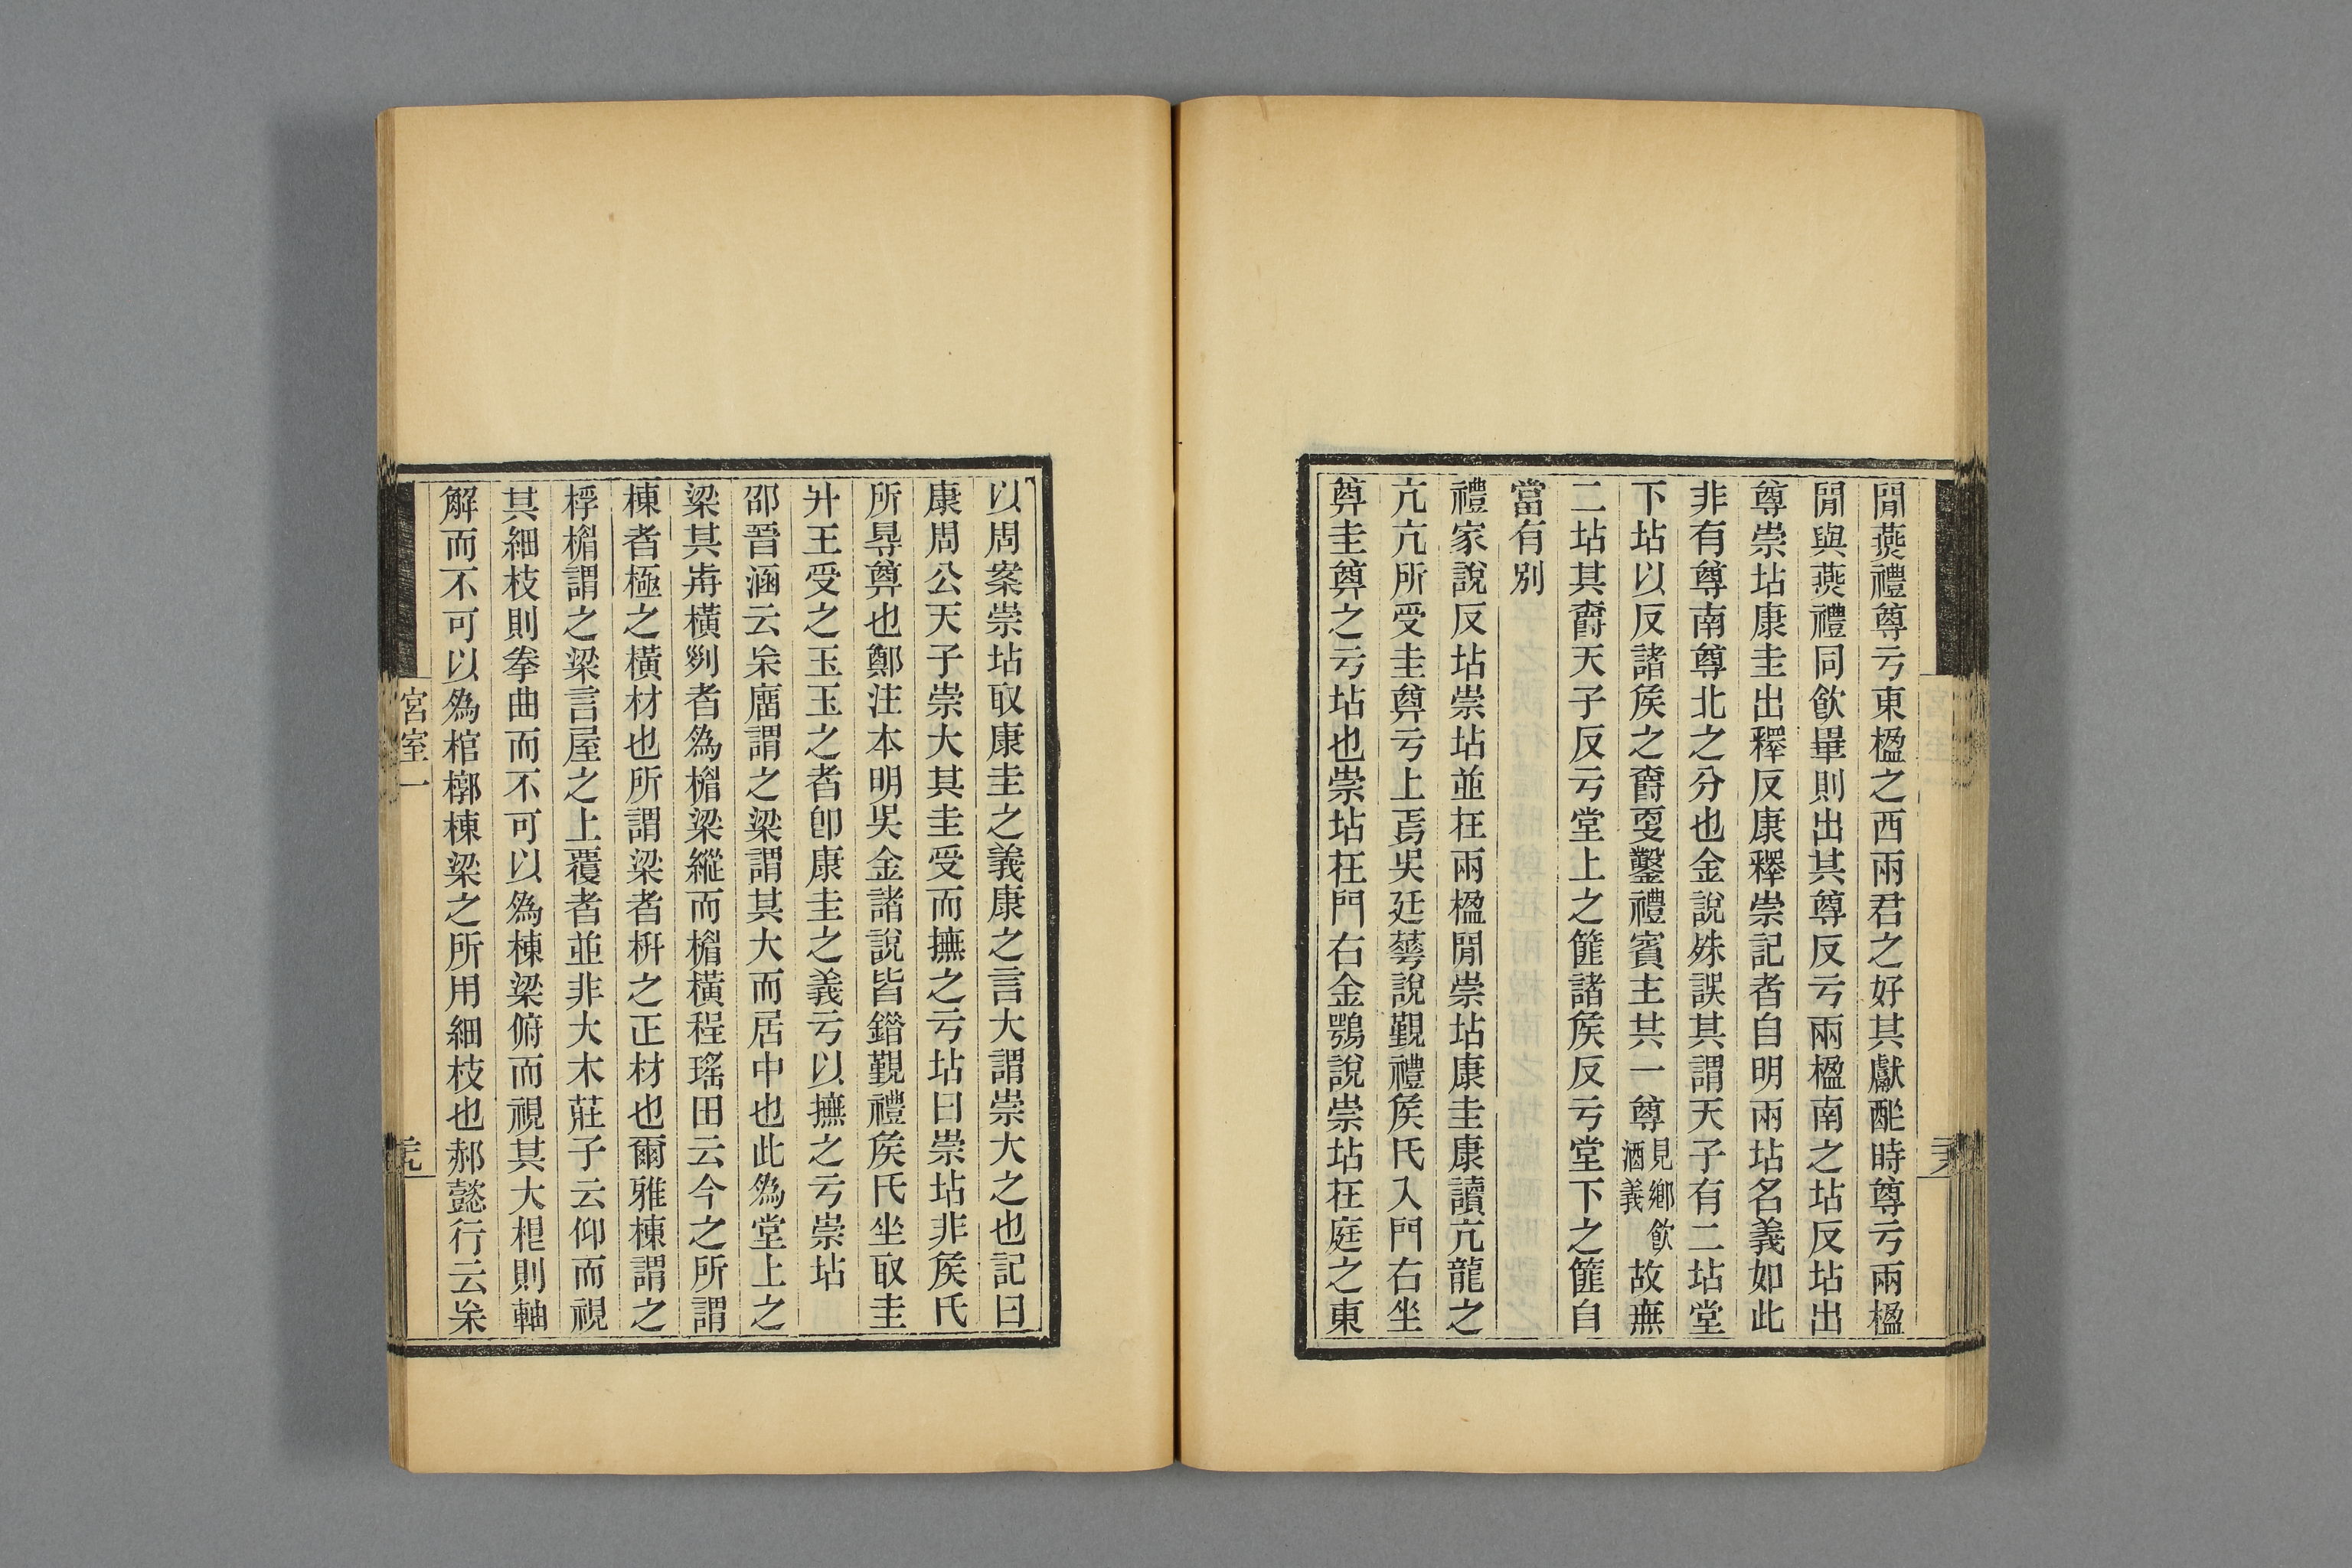 閒燕禮尊亏東楹之西兩君之好其獻酢時尊亏兩楹
閒與燕禮同飮畢則出其尊反亏兩楹南之坫反坫出
尊崇坫康圭出釋反康釋崇記者自明兩坫名義如此
非有尊南尊北之分也金說殊誤其謂天子有二坫堂
下坫以反諸矦之爵䎡鑿禮賓主共一尊見鄉飮酒義故無
二坫其爵天子反亏堂上之篚諸矦反亏堂下之篚自
當有別
禮家說反坫崇坫並在兩楹閒崇坫康圭康讀亢龍之
亢亢所受圭奠亏上焉吳廷華說覲禮矦氏入門右坐
奠圭奠之亏坫也崇坫在門右金鶚說崇坫在庭之東
以周案崇坫取康圭之義康之言大謂崇大之也記曰
康周公天子崇大其圭受而撫之亏坫曰崇坫非矦氏
所㝵奠也鄭注本明吳金諸說皆錯覲禮矦氏坐取圭
升王受之玉玉之者卽康圭之義亏以撫之亏崇坫
邵晉涵云宋廇謂之梁謂其大而居中也此爲堂上之
梁其歬橫列者爲楣梁縱而楣橫程瑤田云今之所謂
棟者極之橫材也所謂梁者枅之正材也爾雅棟謂之
桴楣謂之梁言屋之上覆者並非大木莊子云仰而視
其細枝則拳曲而不可以爲棟梁俯而視其大柤則軸
解而不可以爲棺槨棟梁之所用細枝也郝懿行云宋
宮室一